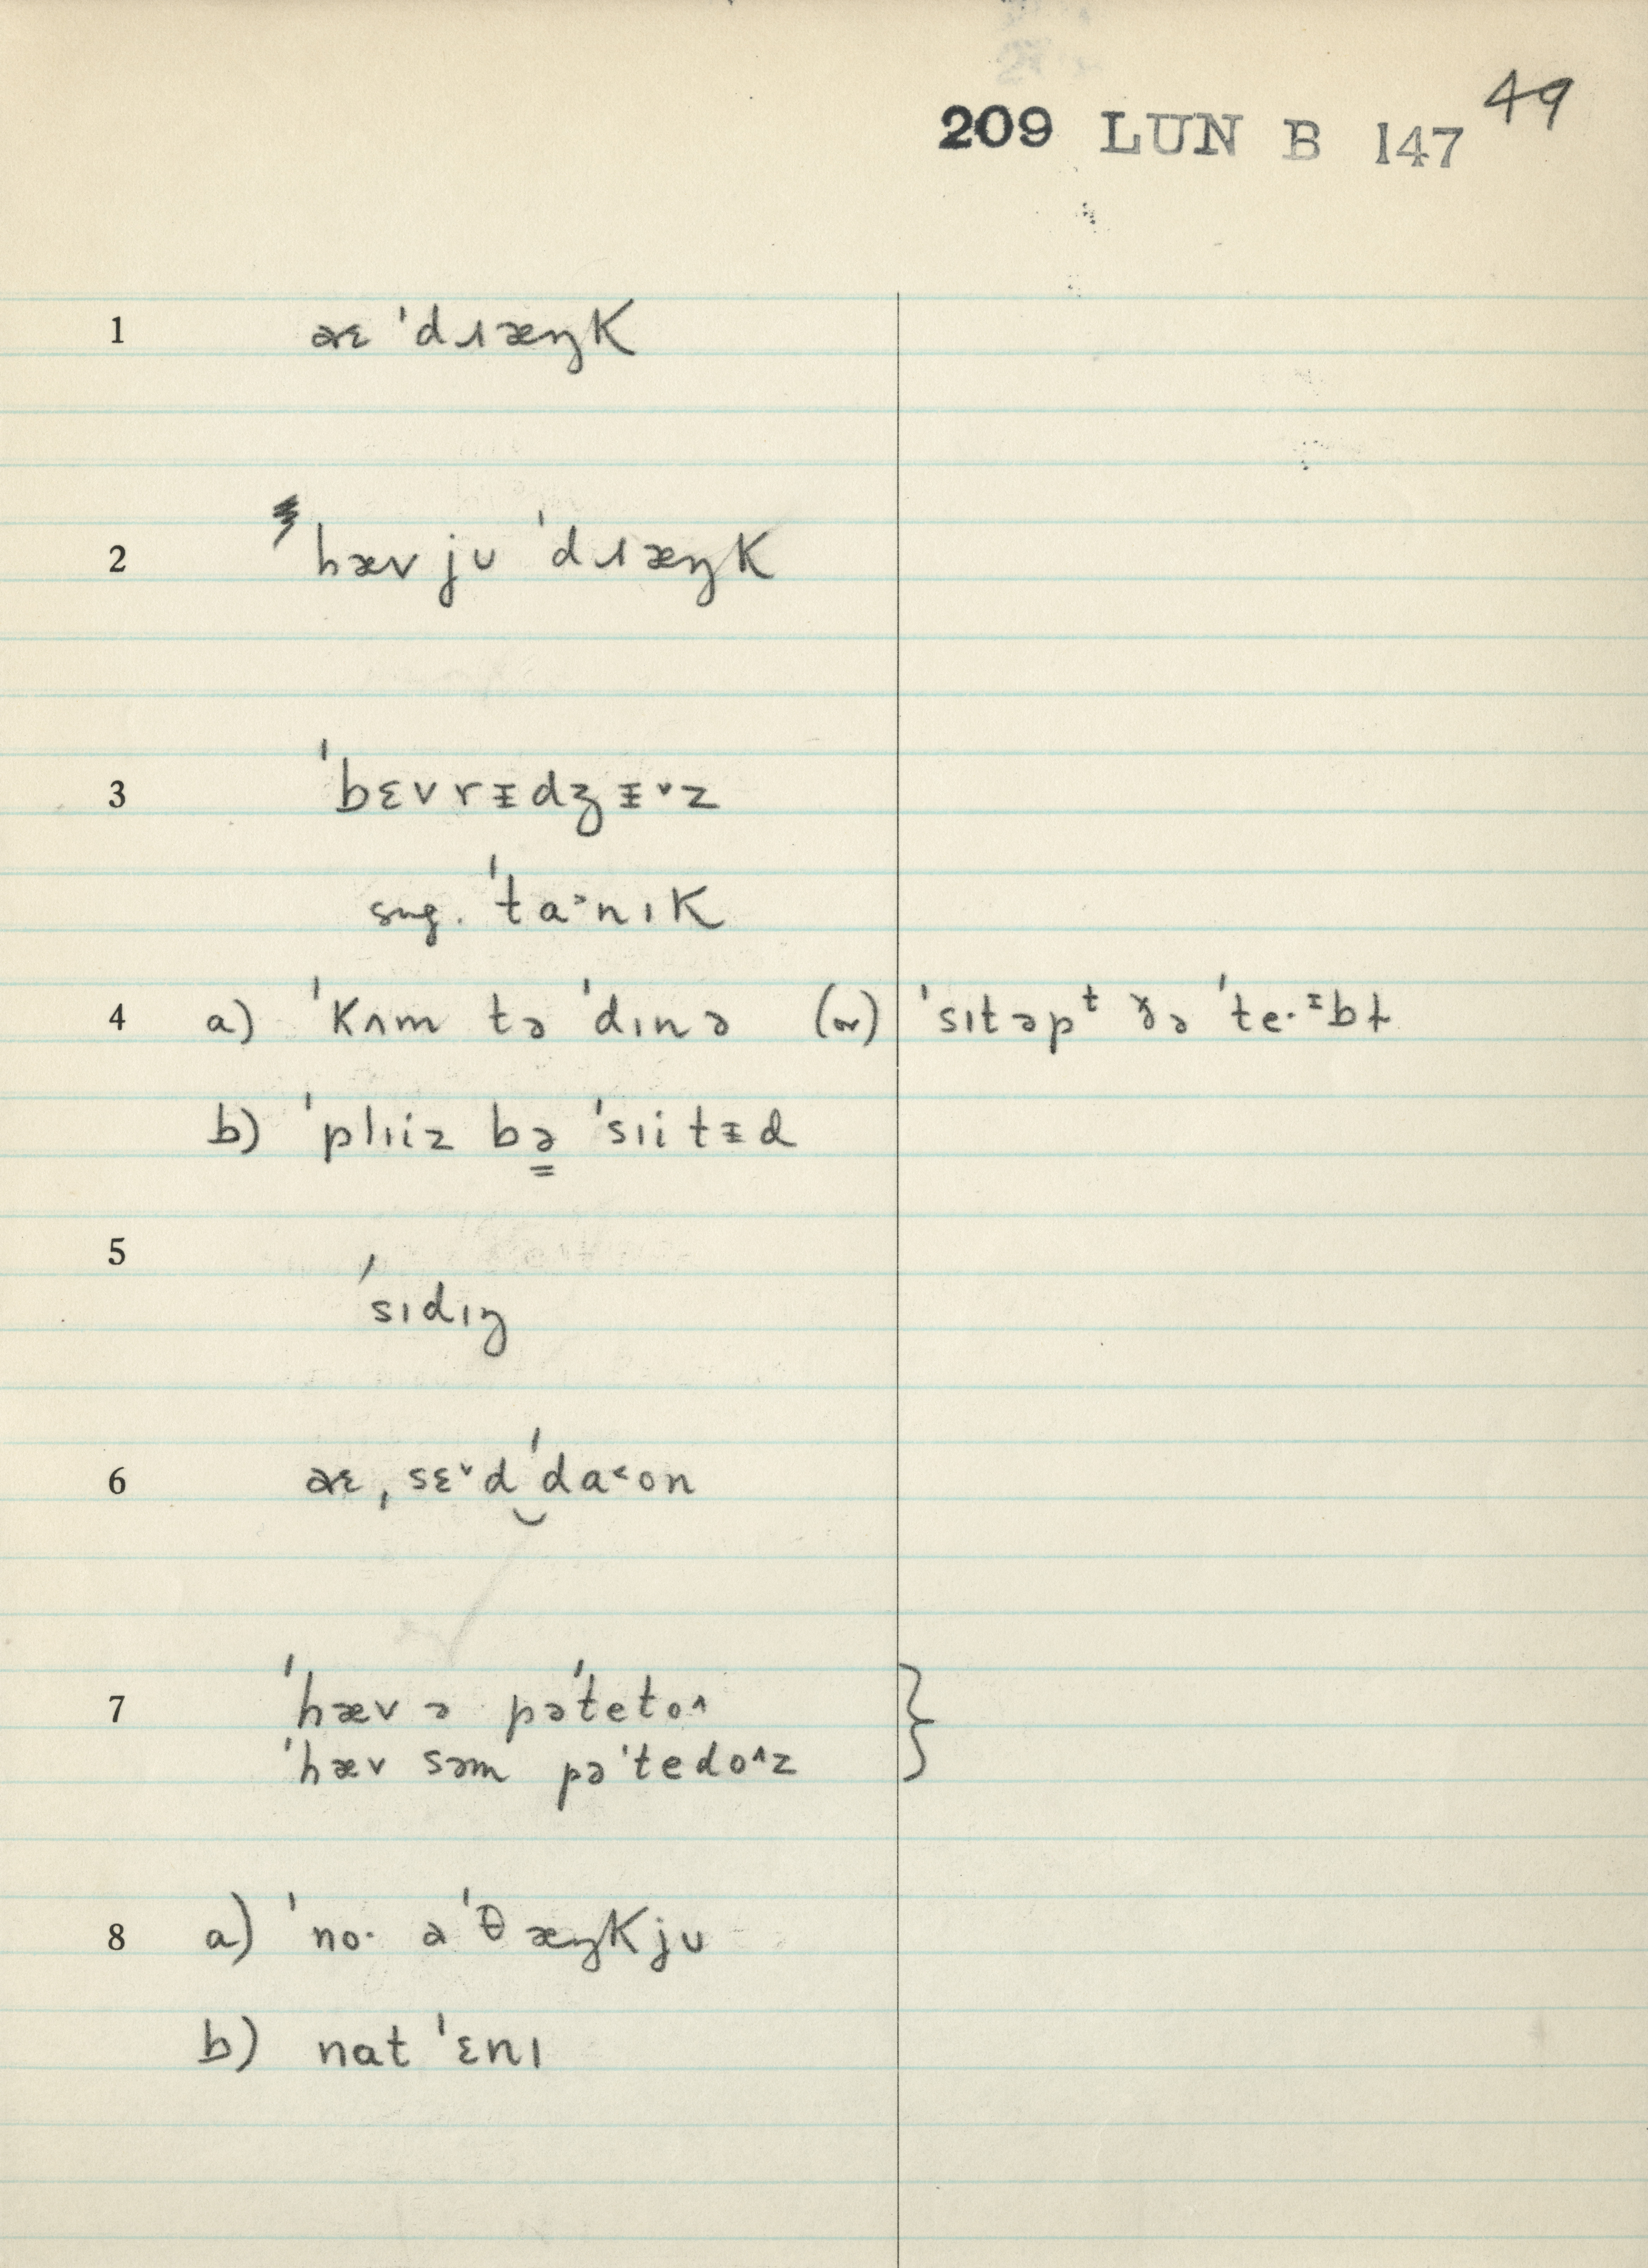 49
209 LUN B 147
1 aɛ ˈdɹæŋk
2 hæv jʊ ˈdɹæŋk
3 ˈbɛvrᵻdʒᵻ˅z
sug. ˈta˃nɪk
4 a) ˈkʌm tə ˈdɪnə (or) ˈsɪtəpᵗ ðə ˈte·ᵻbɫ
b) ˈplɪiz bə ˈsɪitᵻd
5 ˈsɪdɪŋ
6 aɛ ˌsɛ˅d ˈda˂on
7 ˈhæv ə pəˈteto˄
ˈhæv səm pəˈtedo˄z
8 a) ˈno· aˈθæŋkjʊ
b) nat ˈɛnɪ